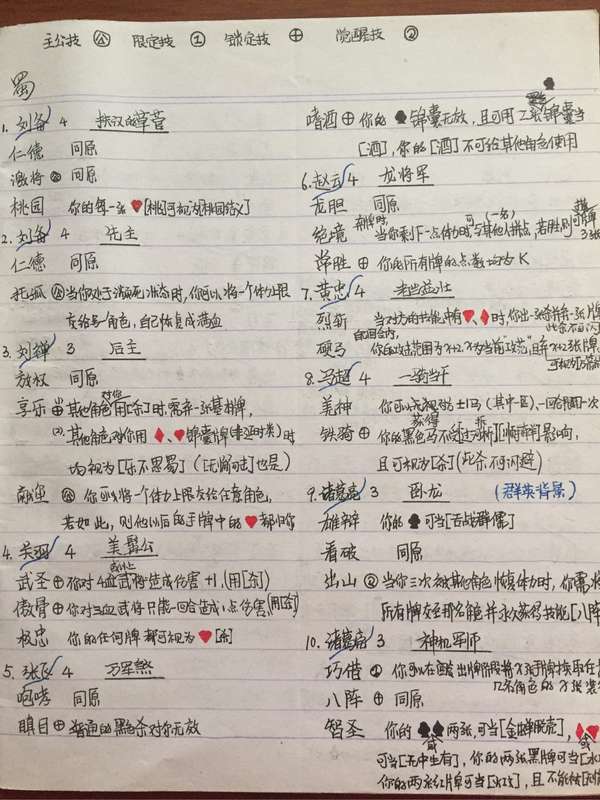 主公技 公 限定技 ① 锁定技 ⊕ 觉醒技 ②
蜀
1. 刘备 4 扶汉的草莽
仁德 同原
激将 公 同原
桃园 你的每一张♥[桃]可视为[桃园结义]
2. 刘备 4 先主
仁德 同原
托孤 公 当你处于濒死状态时,你可以将一个体力上限
交给另一角色,自己恢复成满血
3. 刘禅 3 后主
放权 同原
享乐 其他角色对你用[杀]时,需弃一张基本牌,
(2). 其他角色对你用♦、♥锦囊牌(幸延时类)时
均视为[乐不思蜀]([无懈可击]也是)
公 你可以将一个体力上限交给任意角色,
若如此,则他以后的手牌中的♥都归你
4. 关羽 4 美髯公
武圣 ⊕ 你对4血或以上武将造成伤害+1,(用[杀])
傲骨 ⊕ 你对3血武将只能一回合造成1点伤害,(用[杀])
极忠 你的任何牌都可视为♥[杀]
5. 张飞 4 万军煞
咆哮 同原
瞋目 ⊕ 普通的黑色杀对你无效
嗜酒 ⊕ 你的♠锦囊无效,且可用锦囊当
[酒],你的[酒]不可给其他角色使用
6. 赵云 4 龙将军
龙胆 同原
绝境 当你剩下一点体力时可与其他人拼点,若胜则
常胜 ⊕ 你的所有牌的点数均为K
7. 黄忠 4 老当益壮
烈斩 当对方的技能中有♥、♦时,你出一张杀并弃一张牌
硬弓 你的回合内,你的攻击范围为x+2,x为当前攻范,
8. 马超 4 一骑当千
美神 你可以无视对方±1马(其中一匹)、一回合限一次
铁骑 ⊕ 你的黑色马不受过河拆[]影响,
且可视为[杀](此杀不可闪避)
9. 诸葛亮 3 卧龙 (群英背景)
雄辩 你的♠可当[舌战群儒]
看破 同原
出山 ② 当你三次被其他角色恢复体力时,你需将
所有牌交至那名角色并永久获得技能[八
10. 诸葛亮 3 神机军师
巧借 ① 你可以在出牌阶段将x张手牌换取任意
八阵 ⊕ 同原
智圣 你的♠♠两张,可当[金蝉脱壳],♦或♥
可当[无中生有],你的两张黑牌可当[水
你的两张红牌可当[火攻],且不能被